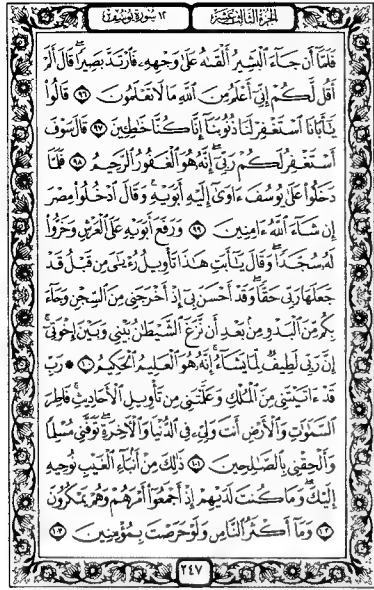 الجزء الثالث عشر
١٢ سورة يوسف
فَلَمَّآ أَن جَآءَ ٱلْبَشِيرُ أَلْقَىٰهُ عَلَىٰ وَجْهِهِۦ فَٱرْتَدَّ بَصِيرًا ۖ قَالَ أَلَمْ
أَقُل لَّكُمْ إِنِّىٓ أَعْلَمُ مِنَ ٱللَّهِ مَا لَا تَعْلَمُونَ ٩٦ قَالُوا۟
يَٰٓأَبَانَا ٱسْتَغْفِرْ لَنَا ذُنُوبَنَآ إِنَّا كُنَّا خَٰطِـِٔينَ ٩٧ قَالَ سَوْفَ
أَسْتَغْفِرُ لَكُمْ رَبِّىٓ ۖ إِنَّهُۥ هُوَ ٱلْغَفُورُ ٱلرَّحِيمُ ٩٨ فَلَمَّا
دَخَلُوا۟ عَلَىٰ يُوسُفَ ءَاوَىٰٓ إِلَيْهِ أَبَوَيْهِ وَقَالَ ٱدْخُلُوا۟ مِصْرَ
إِن شَآءَ ٱللَّهُ ءَامِنِينَ ٩٩ وَرَفَعَ أَبَوَيْهِ عَلَى ٱلْعَرْشِ وَخَرُّوا۟
لَهُۥ سُجَّدًا ۖ وَقَالَ يَٰٓأَبَتِ هَٰذَا تَأْوِيلُ رُءْيَٰىَ مِن قَبْلُ قَدْ
جَعَلَهَا رَبِّى حَقًّا ۖ وَقَدْ أَحْسَنَ بِىٓ إِذْ أَخْرَجَنِى مِنَ ٱلسِّجْنِ وَجَآءَ
بِكُم مِّنَ ٱلْبَدْوِ مِنۢ بَعْدِ أَن نَّزَغَ ٱلشَّيْطَٰنُ بَيْنِى وَبَيْنَ إِخْوَتِىٓ ۚ
إِنَّ رَبِّى لَطِيفٌ لِّمَا يَشَآءُ ۚ إِنَّهُۥ هُوَ ٱلْعَلِيمُ ٱلْحَكِيمُ ١٠٠ ۞ رَبِّ
قَدْ ءَاتَيْتَنِى مِنَ ٱلْمُلْكِ وَعَلَّمْتَنِى مِن تَأْوِيلِ ٱلْأَحَادِيثِ ۚ فَاطِرَ
ٱلسَّمَٰوَٰتِ وَٱلْأَرْضِ أَنتَ وَلِىِّۦ فِى ٱلدُّنْيَا وَٱلْءَاخِرَةِ ۖ تَوَفَّنِى مُسْلِمًا
وَأَلْحِقْنِى بِٱلصَّٰلِحِينَ ١٠١ ذَٰلِكَ مِنْ أَنۢبَآءِ ٱلْغَيْبِ نُوحِيهِ
إِلَيْكَ ۖ وَمَا كُنتَ لَدَيْهِمْ إِذْ أَجْمَعُوٓا۟ أَمْرَهُمْ وَهُمْ يَمْكُرُونَ
١٠٢ وَمَآ أَكْثَرُ ٱلنَّاسِ وَلَوْ حَرَصْتَ بِمُؤْمِنِينَ ١٠٣
٢٤٧